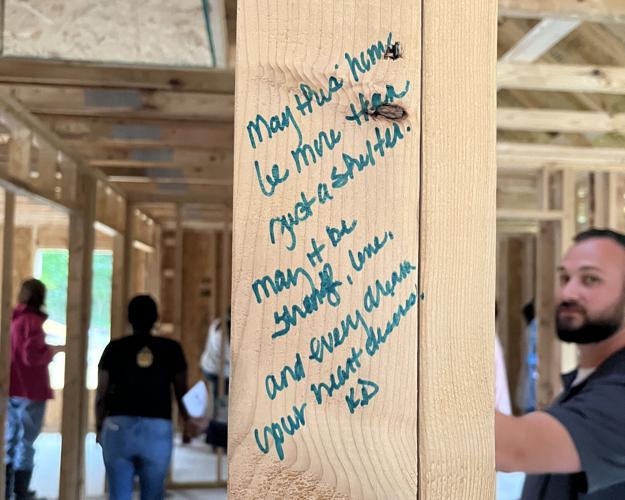 May this home
be more than
just a shelter.
may it be
strength, love,
and every dream
your heart desires!
KD